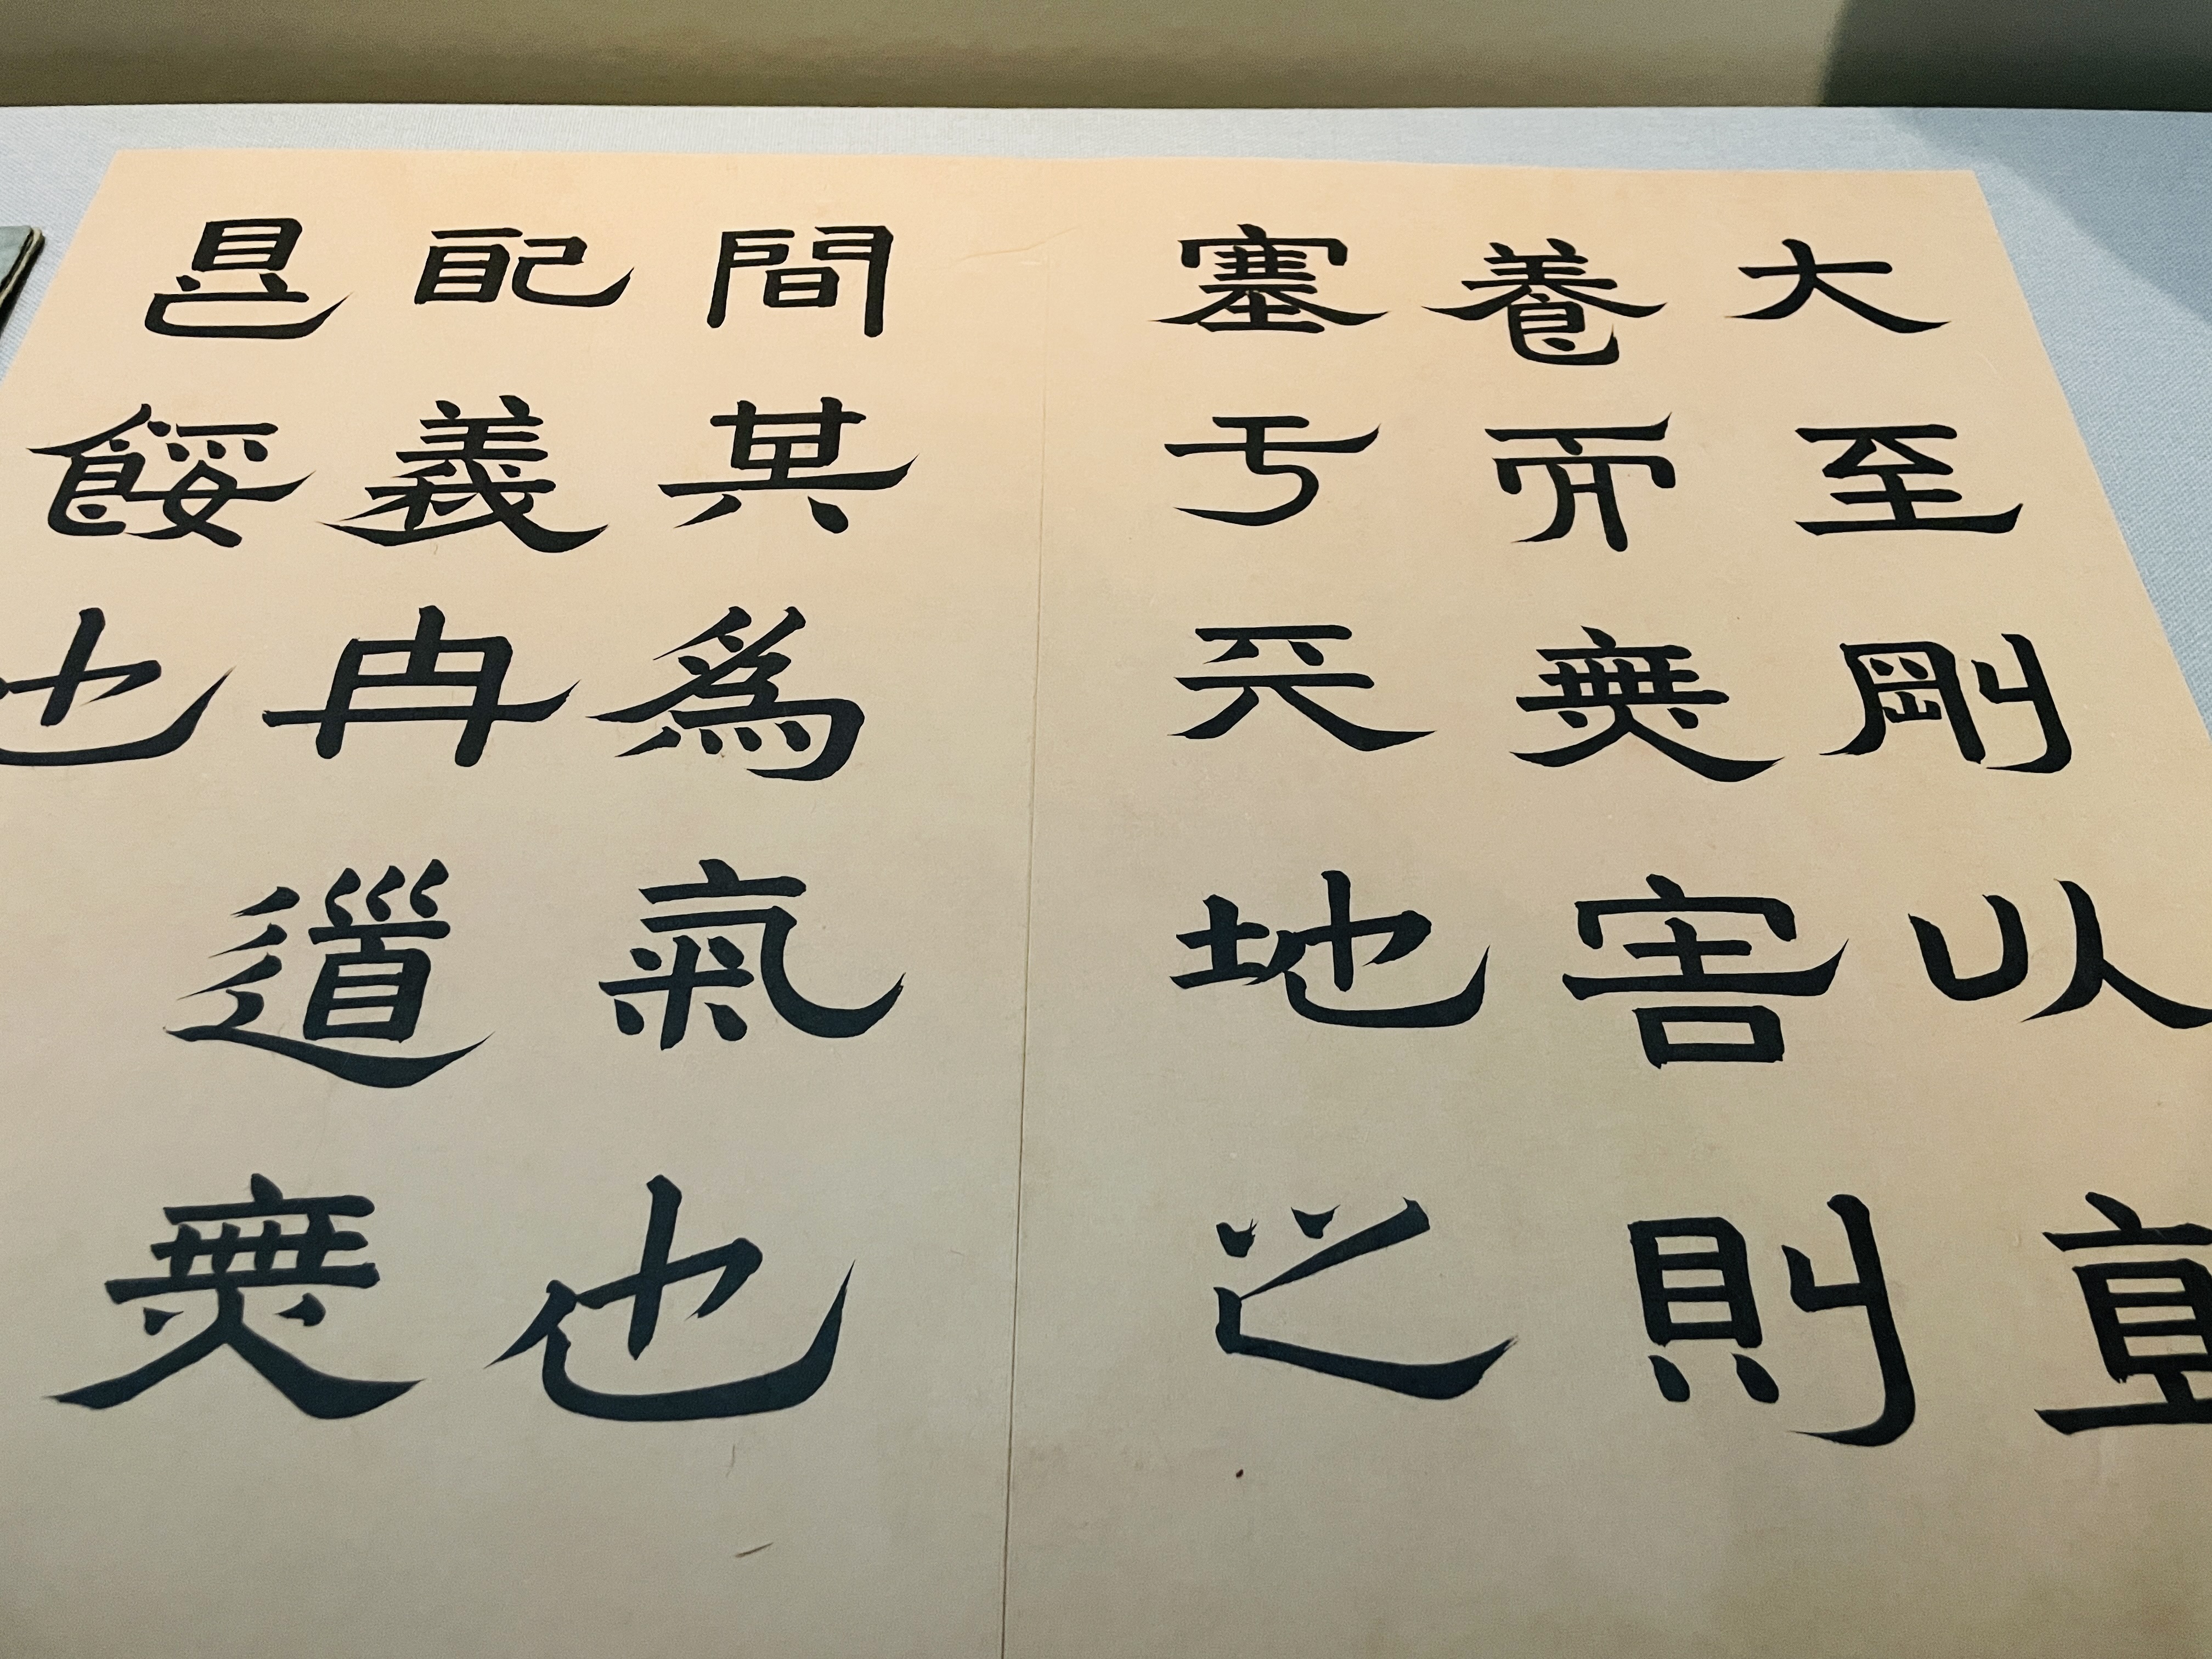 大至剛以直
養而無害則
塞于天地之
間其為氣也
配義與道無
是餒也